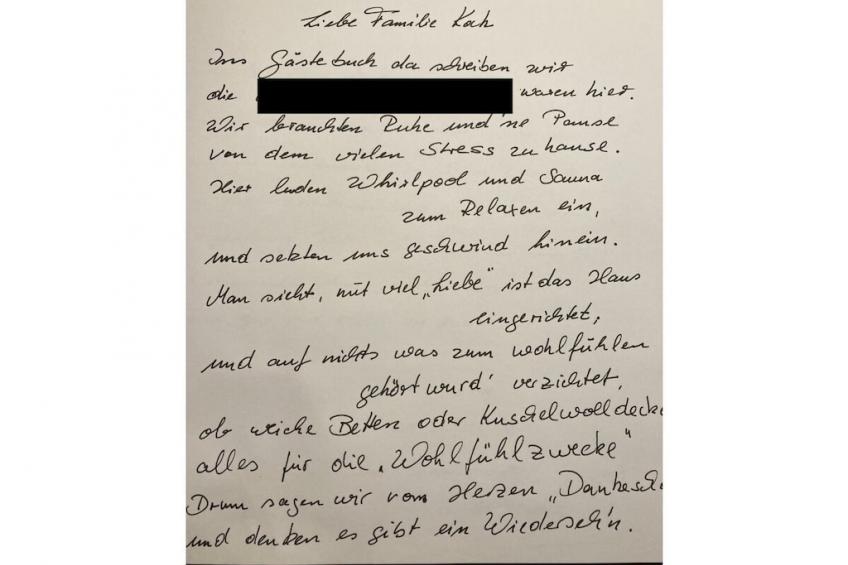 Liebe Familie Kah
Ins Gästebuch da schreiben wir
die waren hier.
Wir brauchten Ruhe und 'ne Pause
von dem vielen Stress zuhause.
Hier luden Whirlpool und Sauna
zum Relaxen ein,
und setzten uns geschwind hinein.
Man sieht, mit viel „Liebe" ist das Haus
eingerichtet,
und auf nichts was zum wohlfühlen
gehört wurd' verzichtet,
ob weiche Betten oder Kuschelwolldecke
alles für die „Wohlfühlzwecke"
Drum sagen wir vom Herzen „Dankesch
und denken es gibt ein Wiederseh'n.